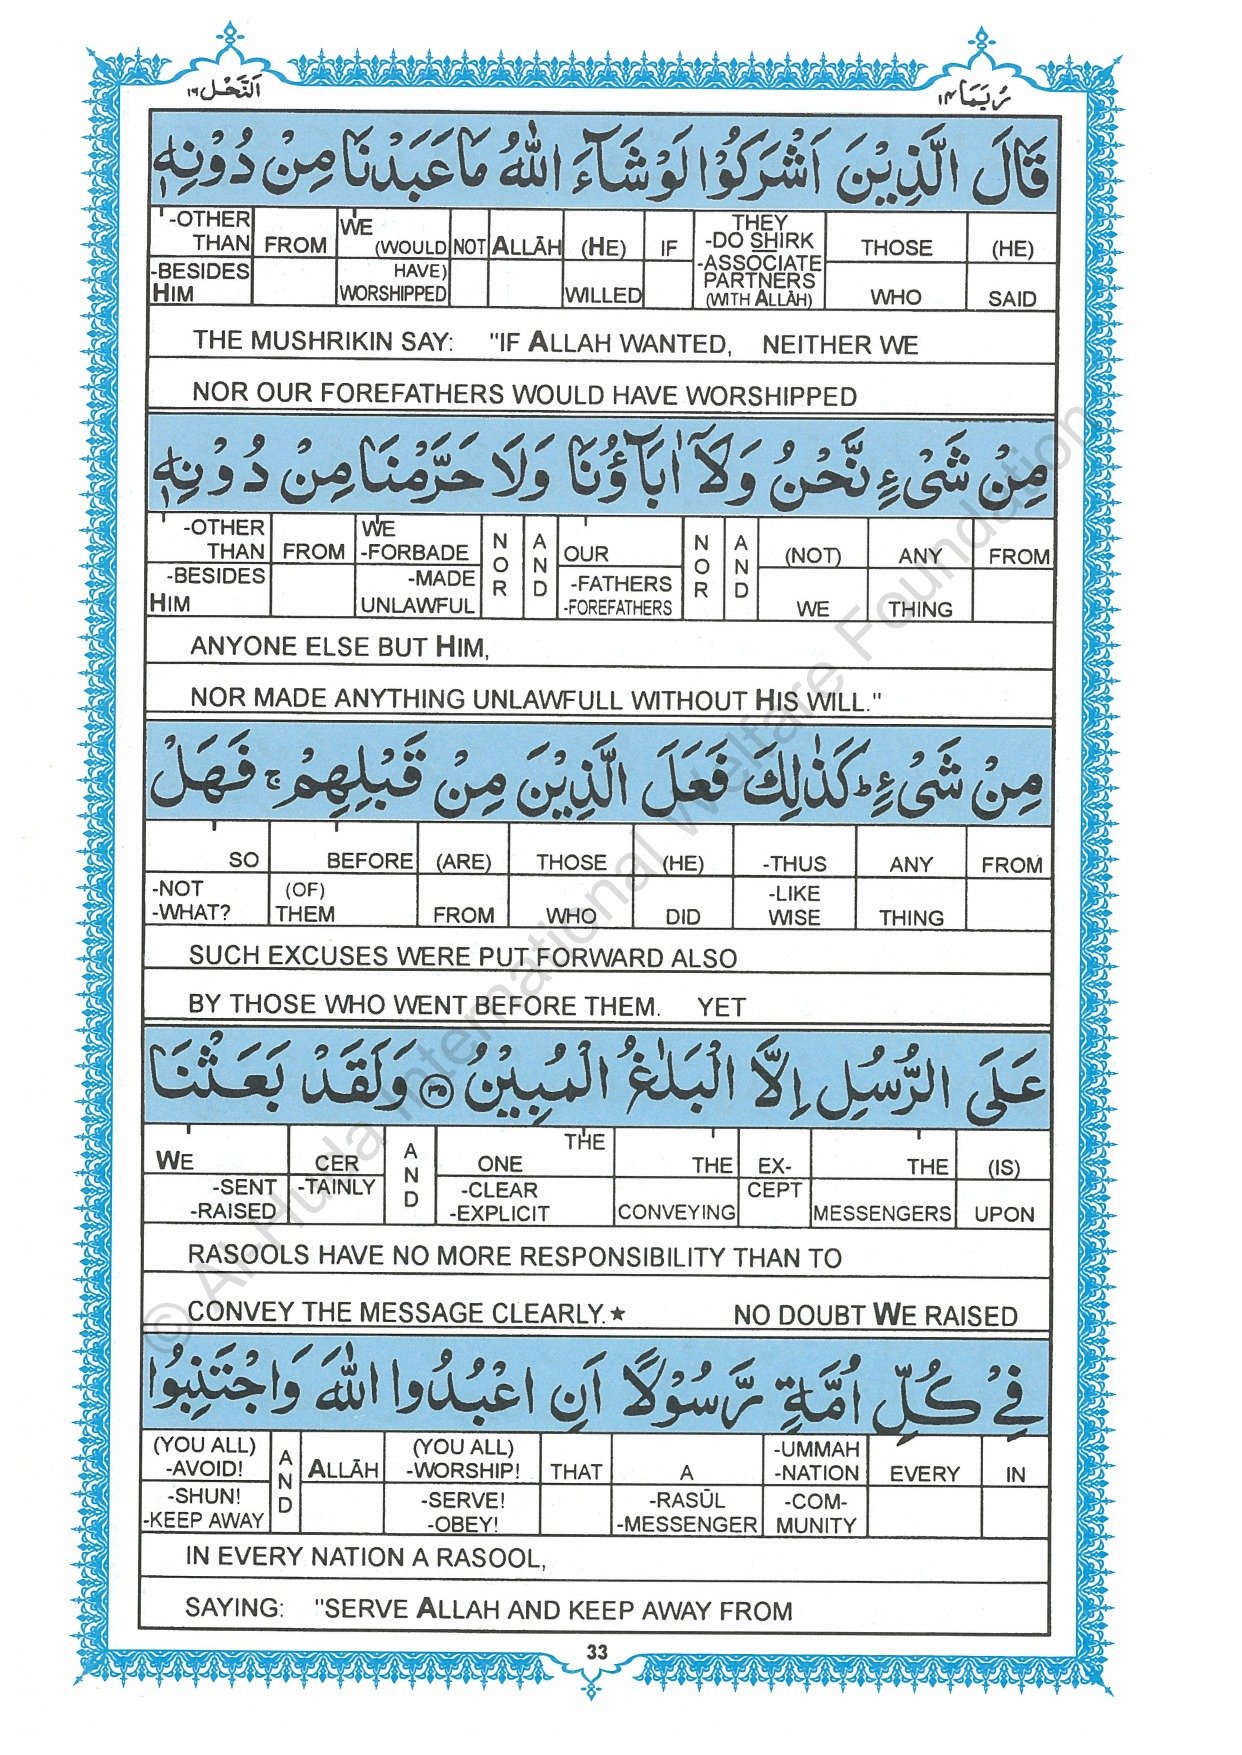 اَلنَّحْل ١٦
رُبَمَا ١٤
قَالَ الَّذِيْنَ اَشْرَكُوْا لَوْ شَآءَ اللّٰهُ مَا عَبَدْنَا مِنْ دُوْنِهٖ
-OTHER THAN -BESIDES HIM | FROM | WE (WOULD HAVE) WORSHIPPED | NOT | ALLĀH | (HE) WILLED | IF | THEY -DO SHIRK -ASSOCIATE PARTNERS (WITH ALLĀH) | THOSE WHO | (HE) SAID
THE MUSHRIKIN SAY: "IF ALLAH WANTED, NEITHER WE
NOR OUR FOREFATHERS WOULD HAVE WORSHIPPED
مِنْ شَیْءٍ نَّحْنُ وَلَآ اٰبَآؤُنَا وَلَا حَرَّمْنَا مِنْ دُوْنِهٖ
-OTHER THAN -BESIDES HIM | FROM | WE -FORBADE -MADE UNLAWFUL | NOR | AND | OUR -FATHERS -FOREFATHERS | NOR | AND | (NOT) WE | ANY THING | FROM
ANYONE ELSE BUT HIM,
NOR MADE ANYTHING UNLAWFULL WITHOUT HIS WILL."
مِنْ شَیْءٍ ؕ كَذٰلِكَ فَعَلَ الَّذِيْنَ مِنْ قَبْلِهِمْ ۚ فَهَلْ
SO -NOT -WHAT? | BEFORE (OF) THEM | (ARE) FROM | THOSE WHO | (HE) DID | -THUS -LIKE WISE | ANY THING | FROM
SUCH EXCUSES WERE PUT FORWARD ALSO
BY THOSE WHO WENT BEFORE THEM. YET
عَلَى الرُّسُلِ اِلَّا الْبَلٰغُ الْمُبِيْنُ ﴿٣٥﴾ وَلَقَدْ بَعَثْنَا
WE -SENT -RAISED | CER -TAINLY | AND | THE ONE -CLEAR -EXPLICIT | THE CONVEYING | EX- CEPT | THE MESSENGERS | (IS) UPON
RASOOLS HAVE NO MORE RESPONSIBILITY THAN TO
CONVEY THE MESSAGE CLEARLY.★ NO DOUBT WE RAISED
فِیْ كُلِّ اُمَّةٍ رَّسُوْلًا اَنِ اعْبُدُوا اللّٰهَ وَاجْتَنِبُوا
(YOU ALL) -AVOID! -SHUN! -KEEP AWAY | AND | ALLĀH | (YOU ALL) -WORSHIP! -SERVE! -OBEY! | THAT | A -RASŪL -MESSENGER | -UMMAH -NATION -COM- MUNITY | EVERY | IN
IN EVERY NATION A RASOOL,
SAYING: "SERVE ALLAH AND KEEP AWAY FROM
33
© Al-Huda International Welfare Foundation